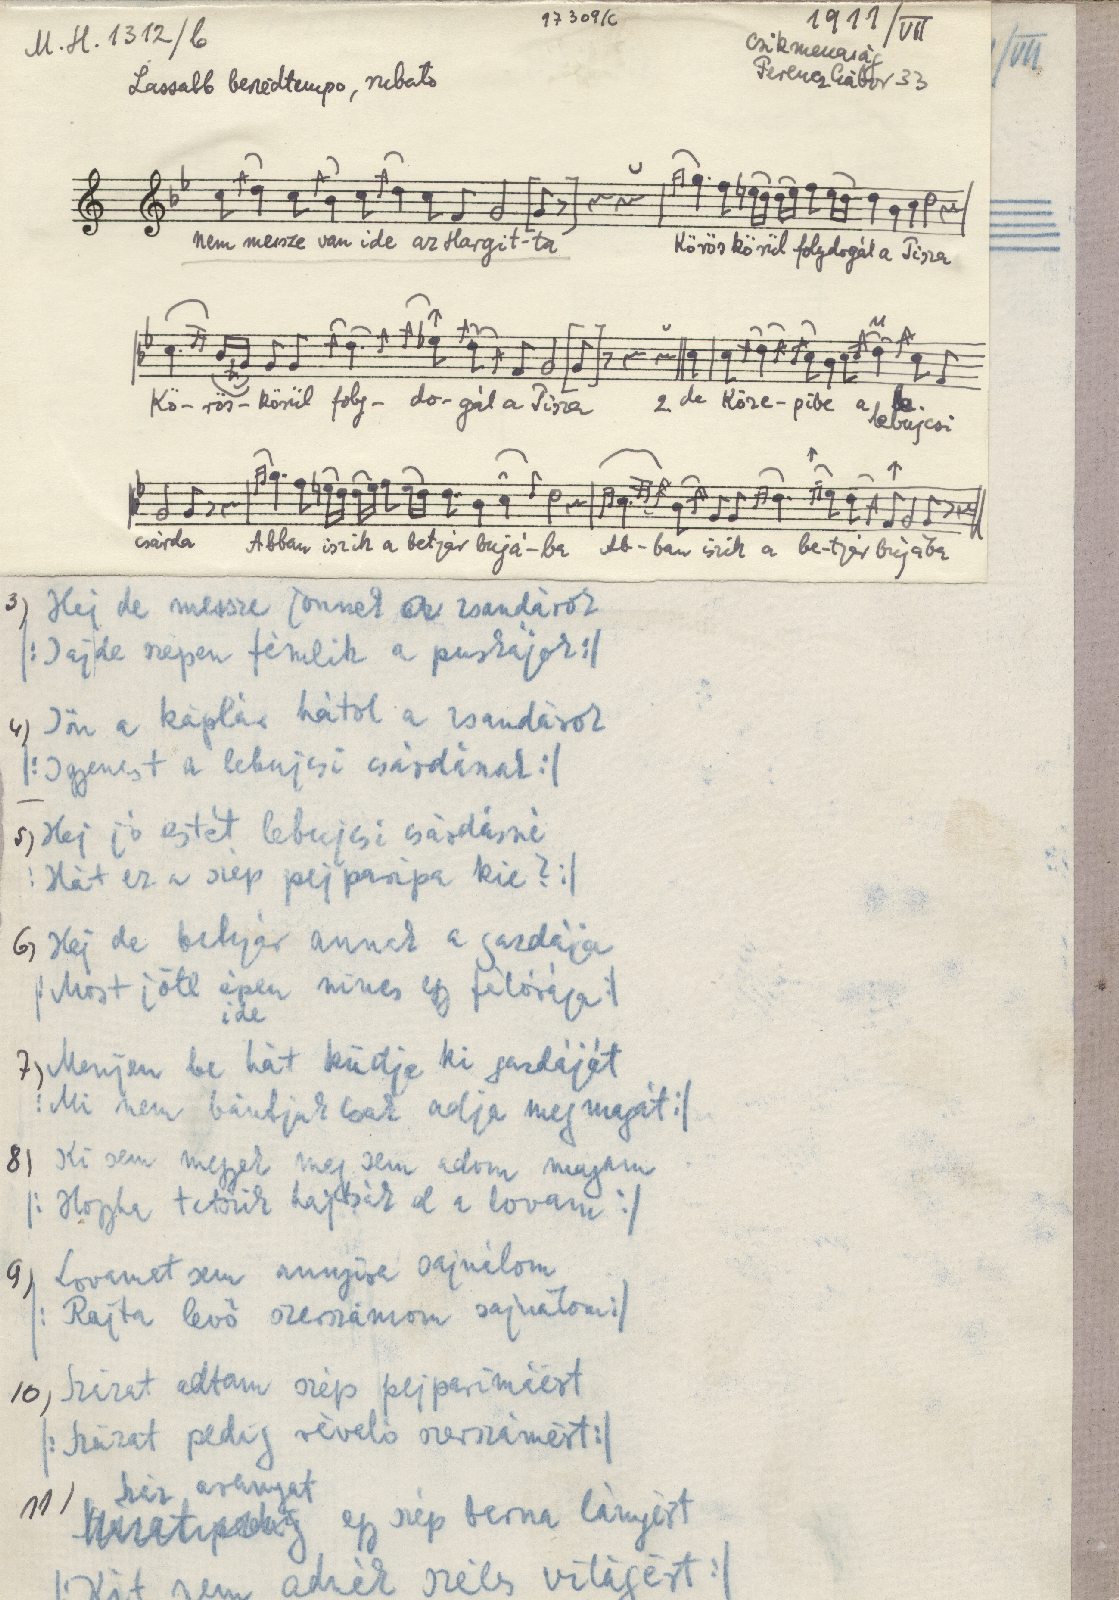 M.H. 1312/b
17309/c
1911/VII
Csikmenaság
Ferencz Gábor 33
/VII
Lassabb beszédtempo, rubato
Nem messze van ide az Hargit-ta Körös körül folydogál a Tisza
Kö-rös-körül foly-do-gál a Tisza 2 de Köze-pibe a lebujcsi
csárda Abban iszik a betjár bujá-ba Ab-ban iszik a be-tjár bujába
3) Hej de messze jönnek a zsandárok
|: Jaj de szépen fénlik a puskájok :|
4) Jön a káplár hátol a zsandárok
|: Igyenest a lebujcsi csárdának :|
5) Hej jó estét lebujcsi csárdásné
: Hát ez a szép pejparipa kié? :|
6) Hej de betyár annak a gazdája
|: Most jött épen nincs egy félórája :|
ide
7) Menjen be hát küdje ki gazdáját
: Mi nem bántjuk csak adja meg magát :|
8) Ki sem megyek meg sem adom magam
|: Hogyha tetszik hajtsák el a lovam :|
9) Lovamat sem annyira sajnálom
|: Rajta levő szerszámom sajnálom :|
10) Százat adtam szép pejparimáért
|: Százat pedig révaló szerszámért :|
Száz aranyat
11) egy szép barna lányért
|: Kit nem adnék széles világért :|